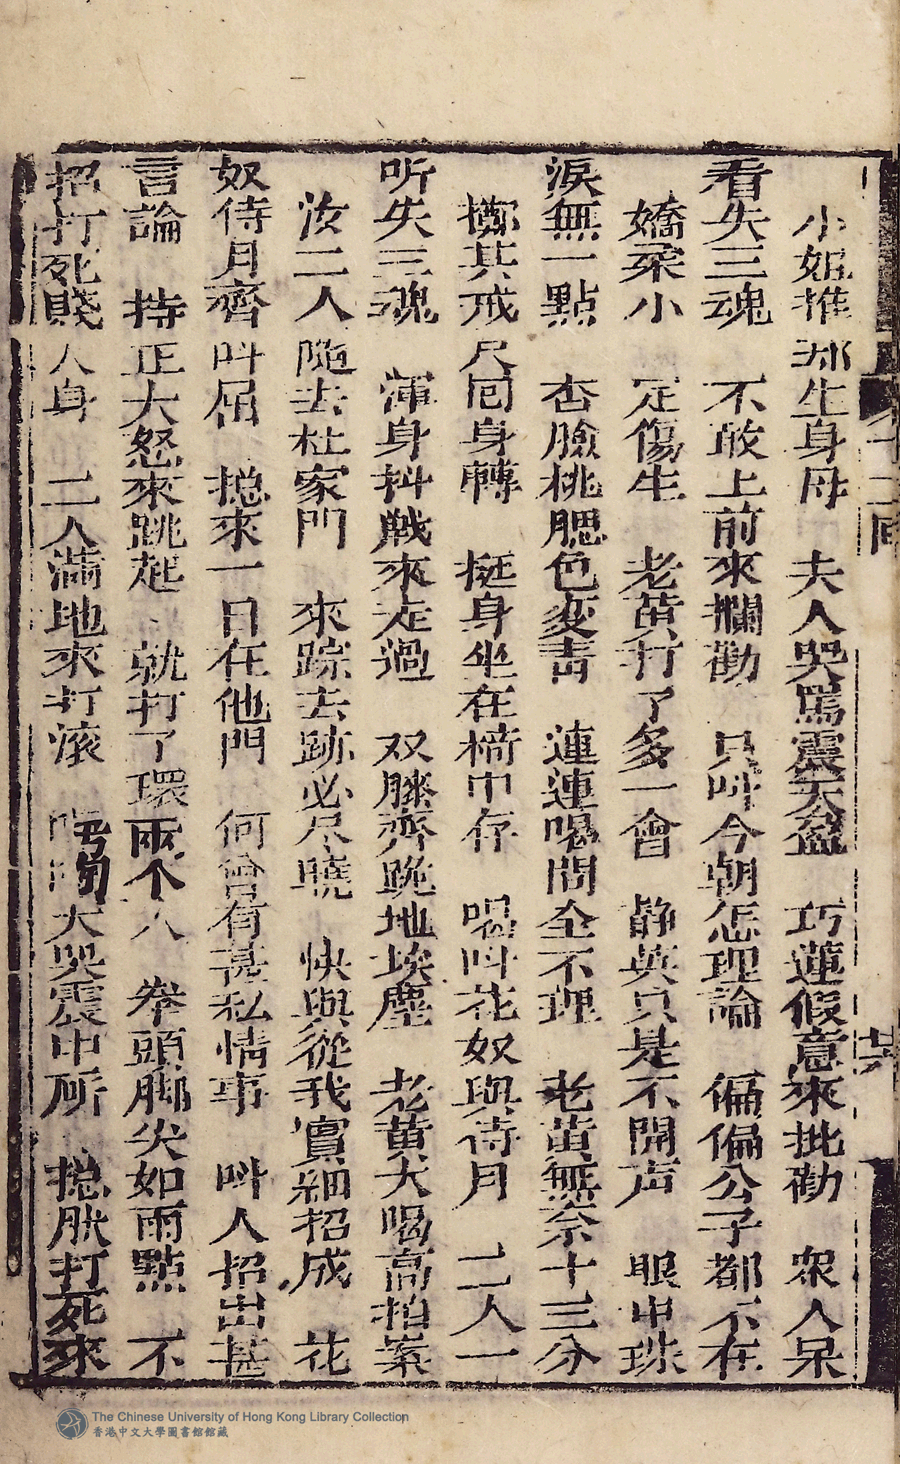 小姐推 生身母 夫人哭罵震天盆 巧蓮假意來批勸 衆人呆
看失三魂 不敢上前來攔勸 只呌今朝怎理論 偏偏公子都不在
嬌柔小 定傷生 老黄打了多一會 静英只是不開声 眼中珠
淚無一點 杏臉桃腮色変青 連連喝問全不理 老黄無奈十三分
擲其戒尺囘身轉 挺身坐在椅巾存 喝呌花奴與侍月 二人一
听失三魂 渾身抖戰來走過 双膝齊跪地埃塵 老黄大喝高拍案
汝二人 随去杜家門 來踪去跡必尽曉 快與從我實細招成 花
奴侍月齊呌屈 搃來一日在他門 何曾有甚私情事 呌人招出甚
言論 持正大怒來跳起 就打了環兩个人 拳頭脚尖如雨點 不
招打死賤人身 二人满地來打滚 大哭震中所 搃肰打死來
十二囘
The Chinese University of Hong Kong Library Collection
香港中文大學圖書館館藏